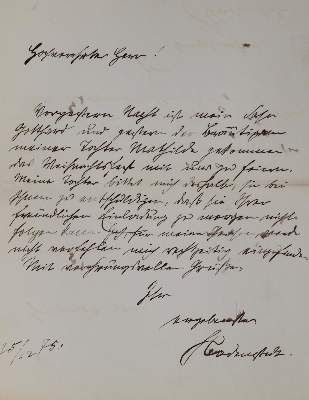 Hochverehrter Herr!
Vorgestern Nacht ist mein Sohn
Gotthard und gestern der Bräutigam
meiner Tochter Mathilde gekommen
das Weihnachtsfest mit uns zu feiern.
Meine Tochter bittet mich deshalb, sie bei
Ihnen zu entschuldigen, daß sie Ihrer
freundlichen Einladung zu morgen nicht
folgen kann. Ich, für meine Person, werde
nicht verfehlen mich rechtzeitig einzufinden.
Mit verehrungsvollem Gruße
Ihr
ergebenster
Bodenstedt.
25/12 75.